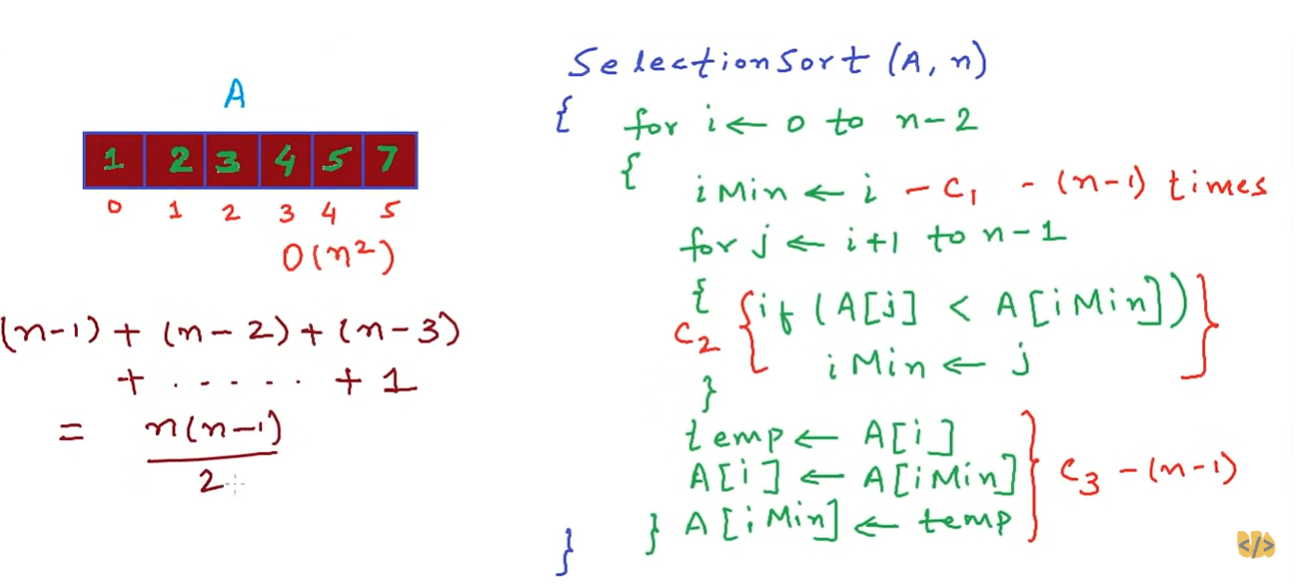 A
1 2 3 4 5 7
0 1 2 3 4 5
O(n²)
(n-1) + (n-2) + (n-3)
+ ...... + 1
= n(n-1)
2
SelectionSort (A, n)
{ for i ← 0 to n-2
{
iMin ← i - C₁ - (n-1) times
for j ← i+1 to n-1
{ { if (A[j] < A[iMin]) }
C₂
iMin ← j
}
temp ← A[i]
A[i] ← A[iMin] } C₃ - (n-1)
} A[iMin] ← temp
}
</>